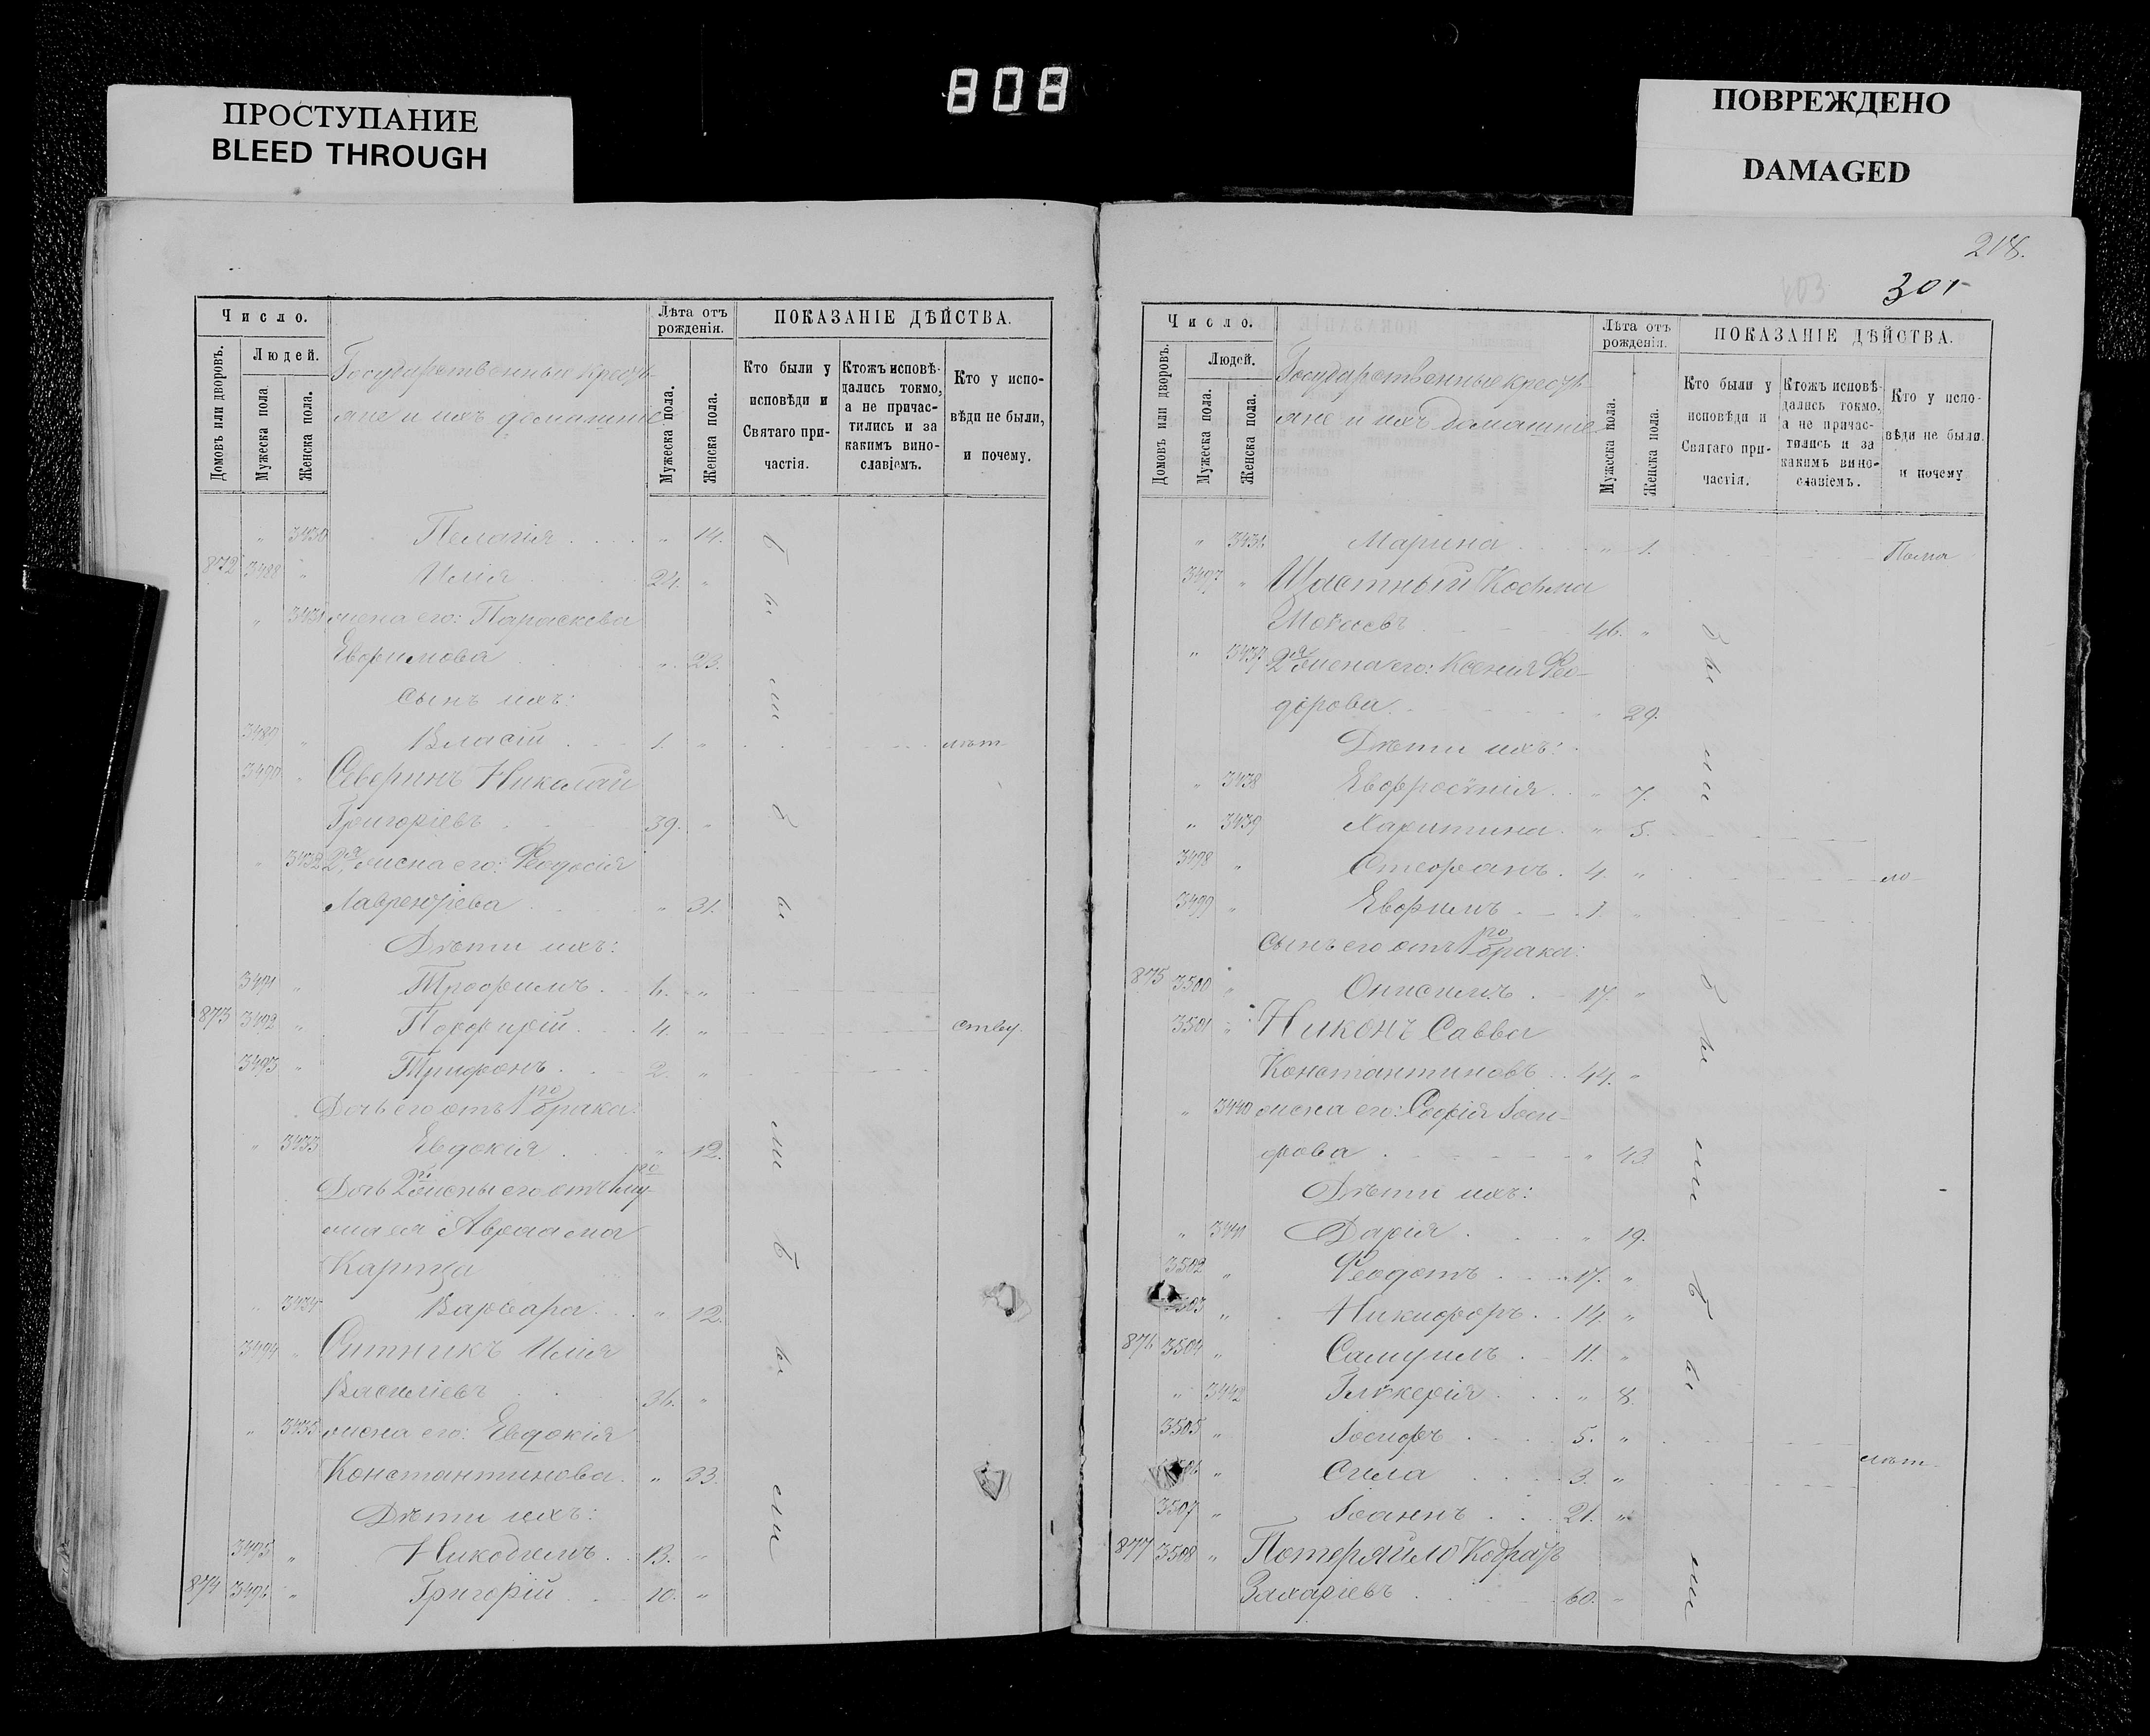 808
ПРОСТУПАНИЕ
BLEED THROUGH
ПОВРЕЖДЕНО
DAMAGED
Число.
Домовъ или дворовъ.
Людей.
Мужеска пола
Женска пола.
Государственные крестъ-
яне и ихъ домашніе
Лѣта отъ рожденія.
Мужеска пола.
Женска пола.
ПОКАЗАНІЕ ДѢЙСТВА.
Кто были у исповѣди и Святаго при-частія.
Ктожъ исповѣ-дались токмо, а не причас-тились и за какимъ вино-славіемъ.
Кто у испо-вѣди не были, и почему.
" 3430 Пелагія " 14.
872 3488 " Илія 24. "
" 3431 жена его: Параскева
Евфимова " 23.
Сынъ ихъ:
3489 " Власій 1. "
3490 " Северинъ Николай
Григоріевъ 39. "
" 3432 2я жена его: Феодосія
Лаврентіева " 31.
Дѣти ихъ:
3491 " Трофимъ 6. "
873 3492 " Порфирій 4. "
3493 " Трифонъ 2. "
Дочь его отъ 1го брака:
" 3433 Евдокія " 12.
Дочь 2й жены его отъ 1го му-
жа ея Авраама
" 3434 Варвара " 12.
3494 " Ситникъ Илія
Василіевъ 36. "
" 3435 жена его: Евдокія
Константинова " 33.
Дѣти ихъ:
3495 " Никодимъ 13. "
874 3496 " Григорій 10. "
218.
301
Число.
Домовъ или дворовъ.
Людей.
Мужеска пола.
Женска пола.
Государственные крестъ-
яне и ихъ домашніе
Лѣта отъ рожденія.
Мужеска пола.
Женска пола.
ПОКАЗАНІЕ ДѢЙСТВА.
Кто были у исповѣди и Святаго при-частія.
Ктожъ исповѣ-дались токмо, а не причас-тились и за какимъ вино-славіемъ.
Кто у испо-вѣди не были. и почему
" 3436 Марина " 1.
3497 " Шастный Косьма
Мокіевъ 46. "
" 3437 2я жена его: Ксенія Фео-
дорова 29.
Дѣти ихъ:
" 3438 Евфросинія " 7.
" 3439 Харитина " 5.
3498 " Стефанъ 4. "
3499 " Евфимъ 1. "
Сынъ его отъ 1го брака:
875 3500 " Онисимъ 17. "
3501 " Никонъ Савва
Константиновъ 44. "
" 3440 жена его: Софія Іоси-
фова " 43.
Дѣти ихъ:
" 3441 Дарія " 19.
3502 " Феодотъ 17. "
" Никифоръ 14. "
876 3504 " Самуилъ 11. "
" 3442 Гликерія " 8.
3505 " Іосифъ 5. "
" Сила 3. "
3507 " Іоаннъ 21. "
877 3508 " Потеряйло Кодратъ
Захаріевъ 60. "